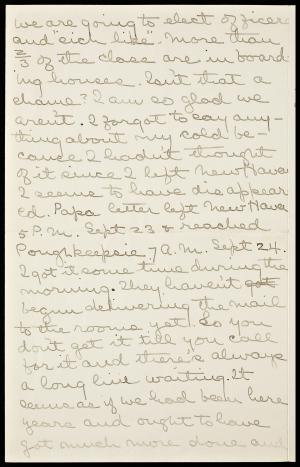 we are going to elect officers
and "sich like". More than
2/3 of the class are in board-
ing houses. Isn't that a
chame? I am so glad we
aren't. I forgot to say any-
thing about my cold be-
cause I hadn't thought
of it since I left New Haven
I seems to have disappear
ed. Papa letter left New Haven
5 P.M. Sept 23 & reached
Poughkeepsie 7 A.M. Sept 24.
I got it some time during the
morning. They haven't got
begun delivering the mail
to the rooms yet. So you
don't get it till you call
for it and there's always
a long line waiting. It
seems as if we had been here
years and ought to have
got much more done and